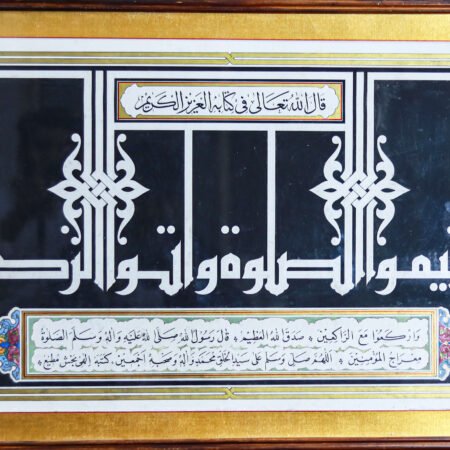 قال الله تعالى في كتابه العزيز الكريم
يموا الصلوة واتوا الزك
وَارْكَعُوا مَعَ الرَّاكِعِينَ * صَدَقَ اللهُ العَظِيمُ * قَالَ رَسُولُ اللهِ صَلَّى اللهُ عَلَيْهِ وَآلِهِ وَسَلَّمَ الصَّلوةُ
مِعْرَاجُ المُؤْمِنِينَ * اَللّهُمَّ صَلِّ وَسَلِّمْ عَلى سَيِّدِ الخَلْقِ مُحَمَّدٍ وَآلِهِ وَصَحْبِهِ اَجْمَعِينَ، كتبه الهى بخش مطيع